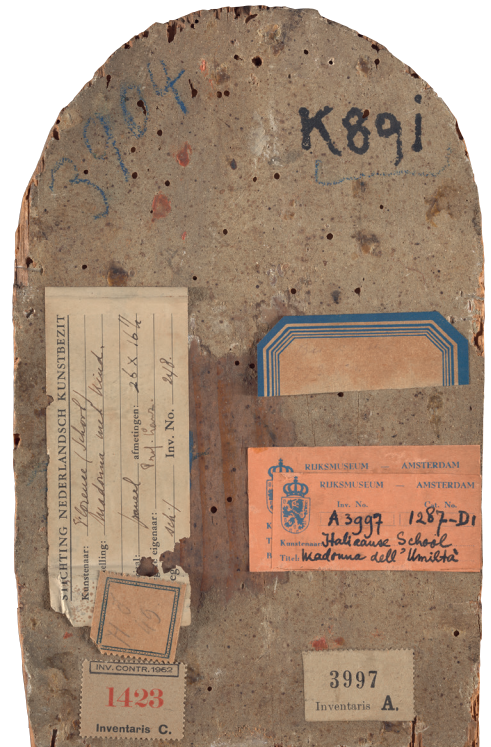 3904
K89i
STICHTING NEDERLANDSCH KUNSTBEZIT
Kunstenaar: Florence / school
elling: Madonna met Kind.
paneel afmetingen: 26 x 16
e eigenaar:
Inv. No. 248.
RIJKSMUSEUM — AMSTERDAM
RIJKSMUSEUM — AMSTERDAM
Inv. No. Cat. No.
A 3997 1287-D1
Kunstenaar Italiaanse School
Titel Madonna dell' Umiltà
INV. CONTR. 1962
1423
Inventaris C.
3997
Inventaris A.